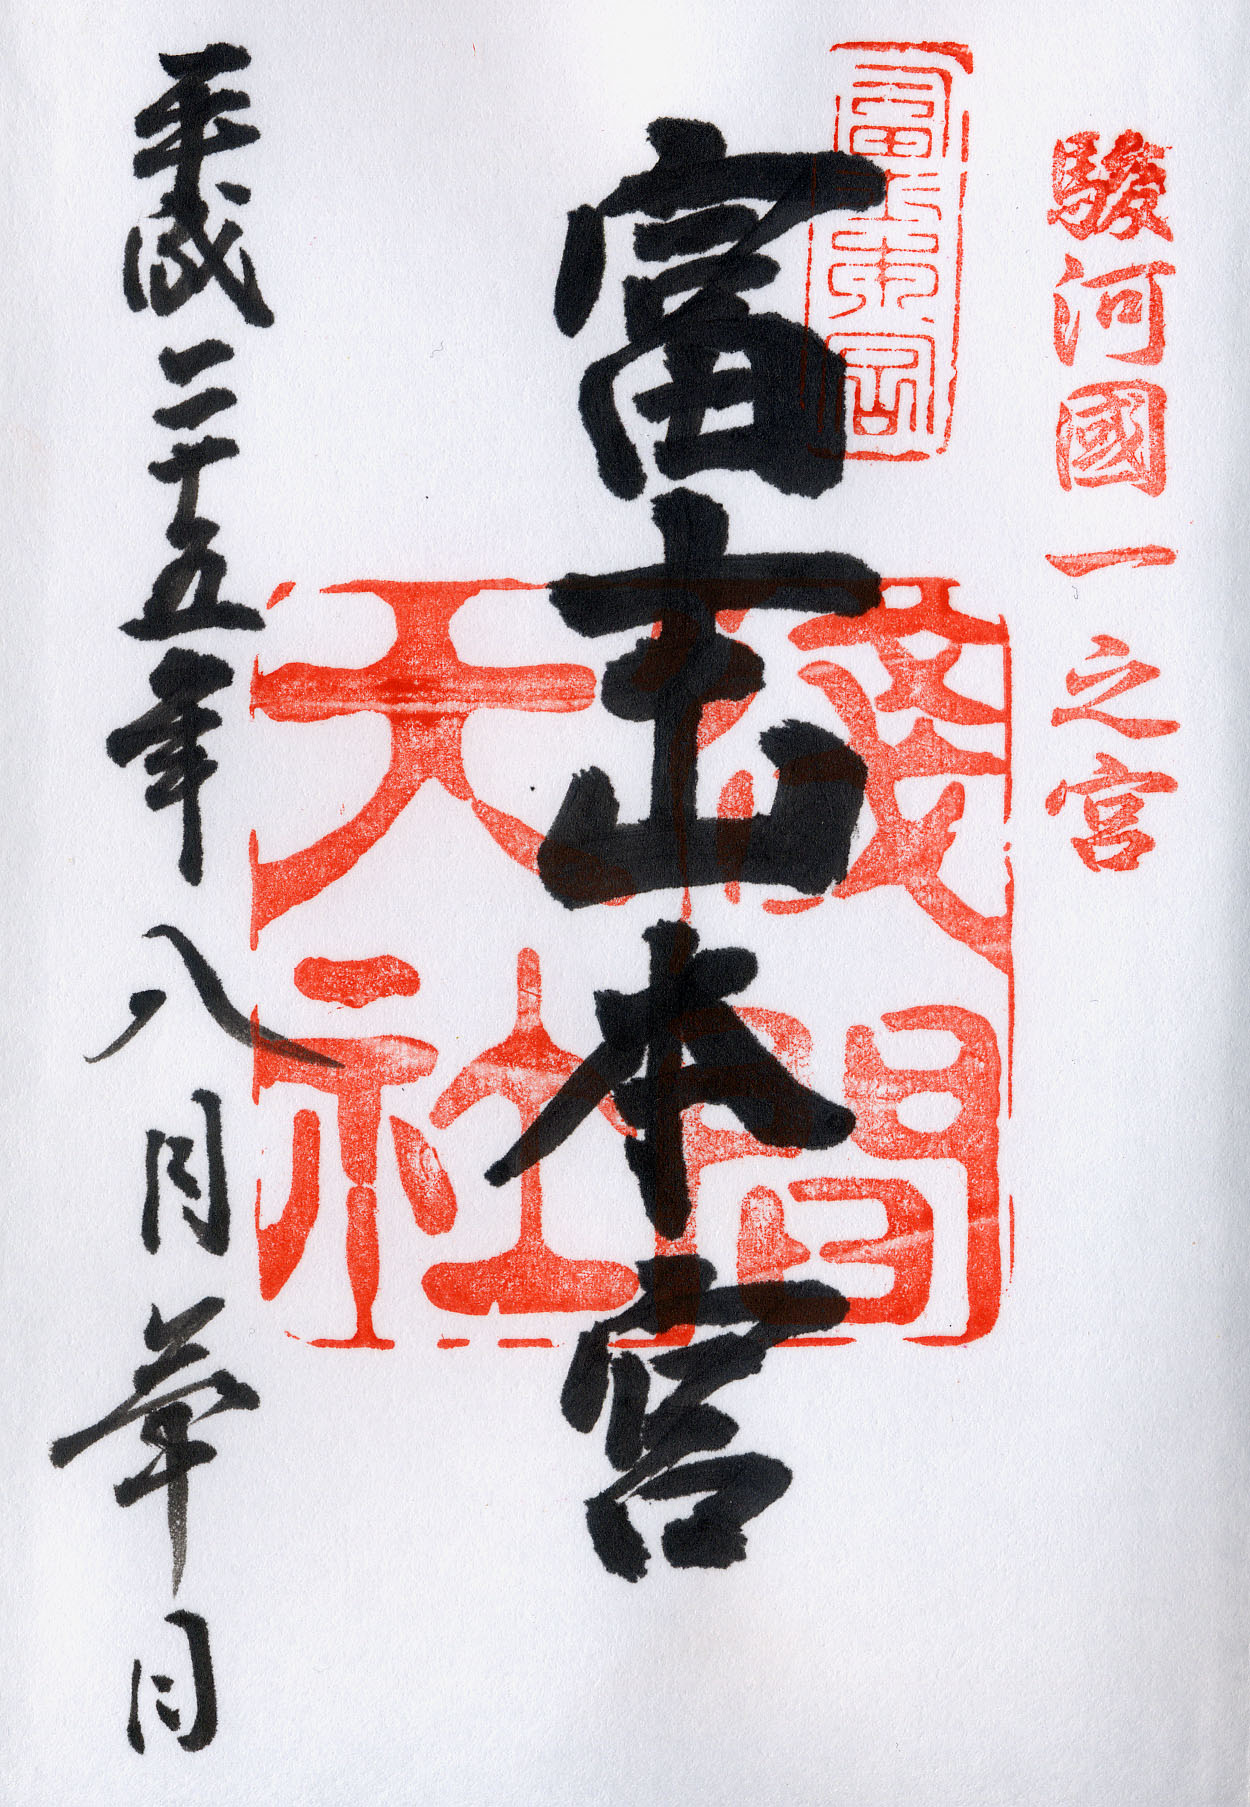 駿河國一之宮
富士山本宮
淺間
大社
平成二十五年八月日